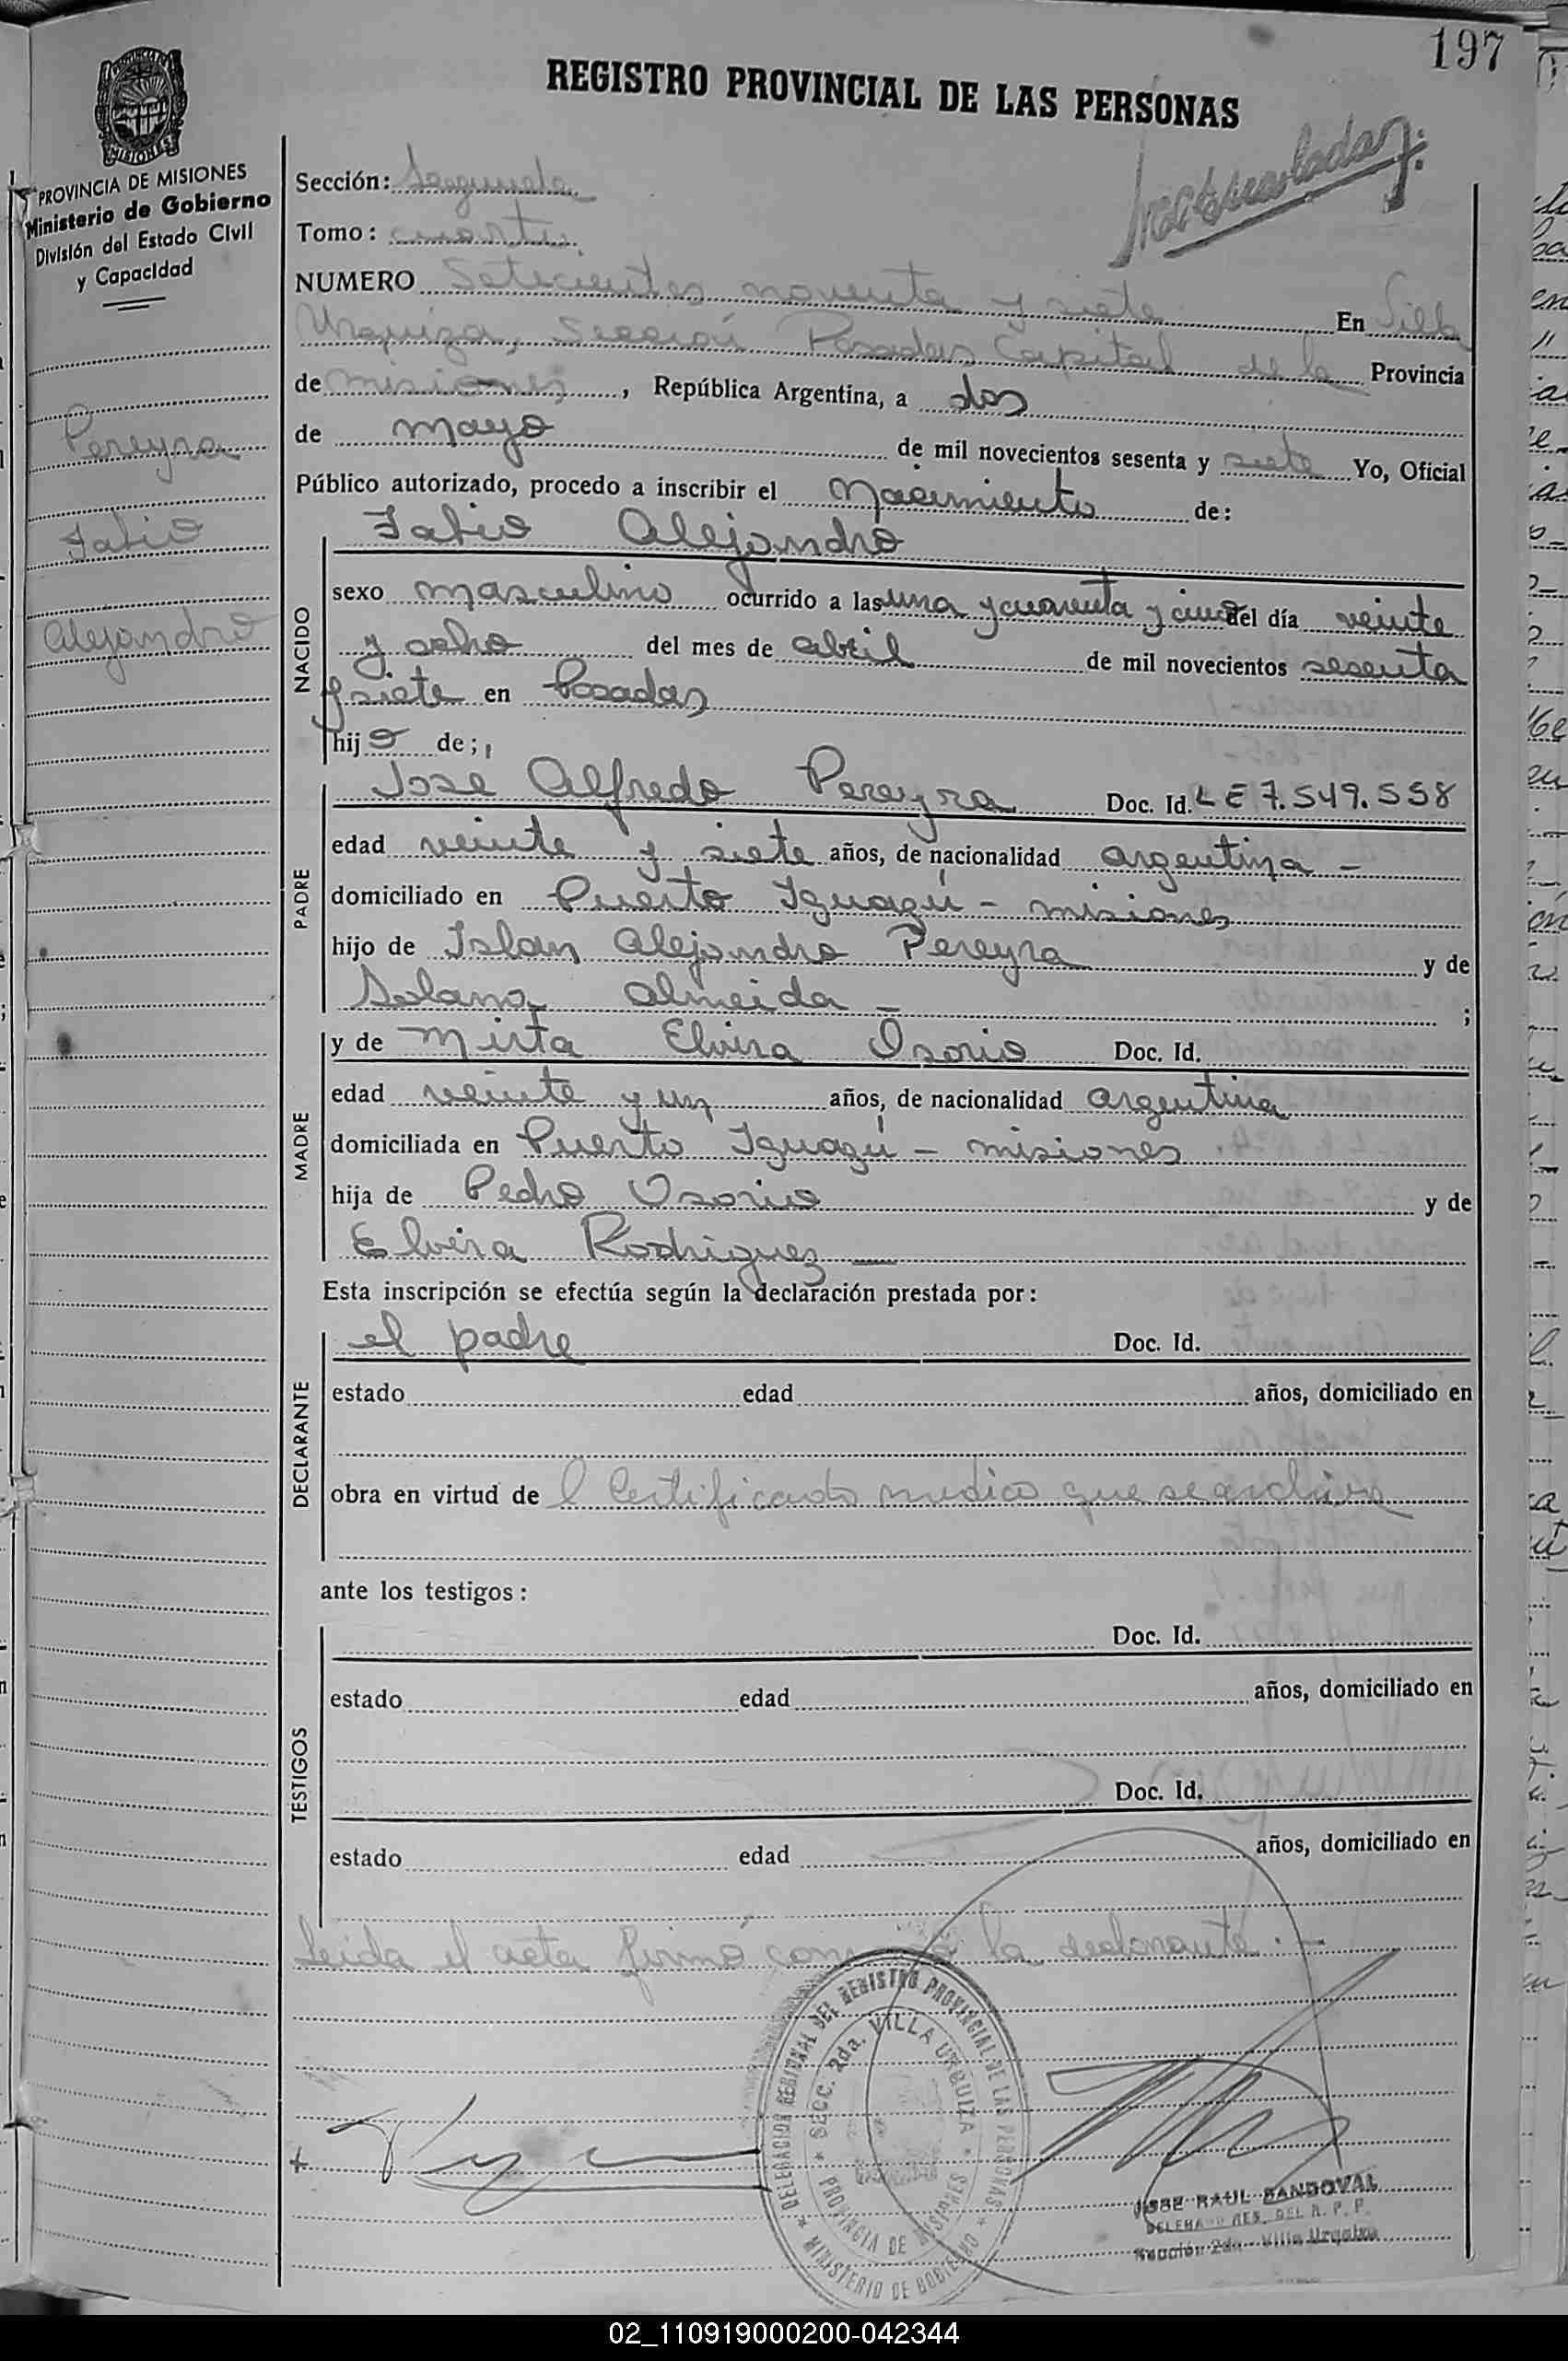 197
REGISTRO PROVINCIAL DE LAS PERSONAS
MISIONES
PROVINCIA DE MISIONES
Ministerio de Gobierno
División del Estado Civil
y Capacidad
Pereyra
Fabio
Alejandro
Sección: Segunda
Tomo: cuarto
NUMERO Setecientos noventa y siete En Villa
Urquiza, Sección Posadas Capital de la Provincia
de misiones, República Argentina, a dos
de mayo de mil novecientos sesenta y siete Yo, Oficial
Público autorizado, procedo a inscribir el Nacimiento de:
NACIDO
Fabio Alejandro
sexo masculino ocurrido a las una y cuarenta y cinco del día veinte
y ocho del mes de abril de mil novecientos sesenta
y siete en Posadas
hijo de;
PADRE
Jose Alfredo Pereyra Doc. Id. L E 7.549.558
edad veinte y siete años, de nacionalidad argentina -
domiciliado en Puerto Iguazú - misiones
hijo de Alejandro Pereyra y de
Solana Almeida - ;
MADRE
y de Mirta Elvira Osorio Doc. Id.
edad veinte y un años, de nacionalidad argentina
domiciliada en Puerto Iguazú - misiones
hija de Pedro Osorio y de
Elvira Rodriguez —
Esta inscripción se efectúa según la declaración prestada por:
DECLARANTE
el padre Doc. Id.
estado edad años, domiciliado en
obra en virtud de l Certificado medico que se archiva
ante los testigos:
TESTIGOS
Doc. Id.
estado edad años, domiciliado en
Doc. Id.
estado edad años, domiciliado en
Leida el acta firmó la declarante . -
DELEGACION REGIONAL DEL REGISTRO PROVINCIAL DE LAS PERSONAS
SECC. 2da. VILLA URQUIZA
PROVINCIA DE MISIONES
MINISTERIO DE GOBIERNO
JOSE RAUL SANDOVAL
DELEGADO REG. DEL R. P. P.
Sección 2da - Villa Urquiza
02_110919000200-042344